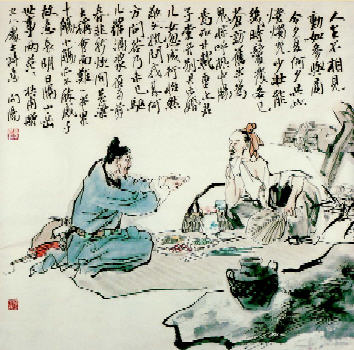 人生不相見
動如參與商
今夕復何夕共此
燈燭光少壯能
幾時鬢髮各已
蒼訪舊半為
鬼驚呼熱中腸
焉知廿載重上君
子堂昔別君未婚
兒女忽成行怡然
敬父執問我來何
方問答乃未已驅
兒羅酒漿夜雨剪
春韭新炊間黃粱
主稱會面難一舉累
十觴十觴亦不醉感子
故意長明日隔山岳
世事兩茫茫 杜甫